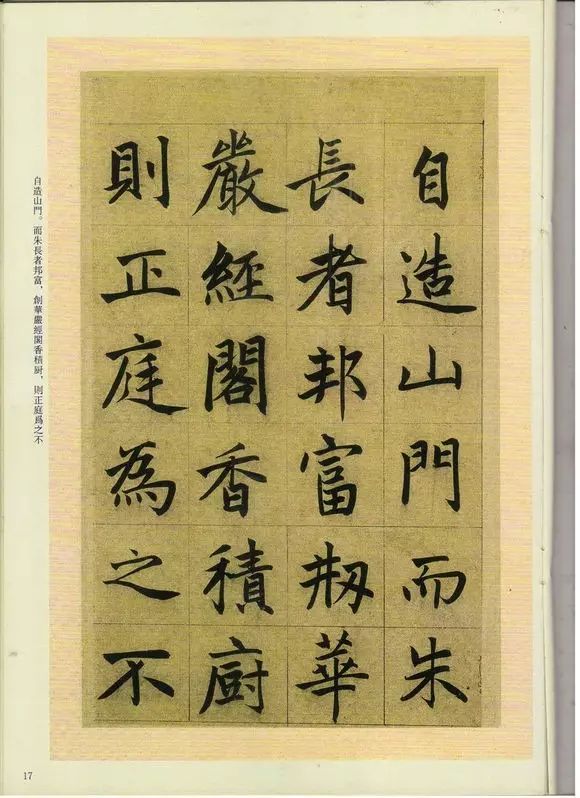 自造山門而朱
長者邦富剏華
嚴經閣香積廚
則正庭為之不
自造山門。而朱長者邦富，創華嚴經閣香積厨，則正庭爲之不
17